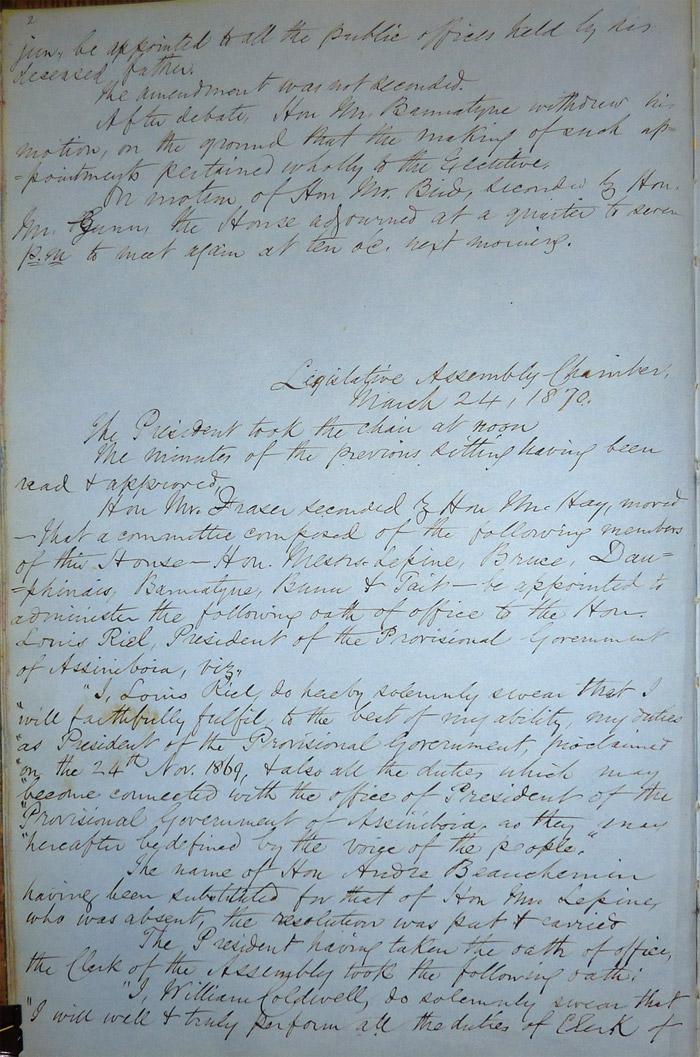 2
jun., be appointed to all the public offices held by his
deceased father.
The amendment was not seconded.
After debate, Hon Mr. Bannatyne withdrew his
motion, on the ground that the making of such ap-
-pointments pertained wholly to the Executive.
On motion of Hon. Mr. Bird, seconded by Hon.
Mr. Gunn, the House adjourned at a quarter to seven
p.m to meet again at ten oc. next morning.
Legislative Assembly Chamber,
March 24, 1870.
The President took the chair at noon
The minutes of the previous sitting having been
read & approved,
Hon Mr. Fraser seconded by Hon Mr. Hay, moved
- That a committee composed of the following members
of this House - Hon. Messrs. Lepine, Bruce, Dau-
-phinais, Bannatyne, Bunn & Tait - be appointed to
administer the following oath of office to the Hon.
Louis Riel, President of the Provisional Government
of Assiniboia, viz,
"I, Louis Riel, do hereby solemnly swear that I
"will faithfully fulfil, to the best of my ability, my duties
"as President of the Provisional Government, proclaimed
"on the 24th Nov. 1869, & also all the duties which may
"become connected with the office of President of the
"Provisional Government of Assiniboia, as they may
"hereafter be defined by the voice of the people."
The name of Hon Andre Beauchemin
having been substituted for that of Hon Mr. Lepine,
who was absent, the resolution was put & carried
The President having taken the oath of office,
the Clerk of the Assembly took the following oath:
"I, William Coldwell, do solemnly swear that
"I will well & truly perform all the duties of Clerk of